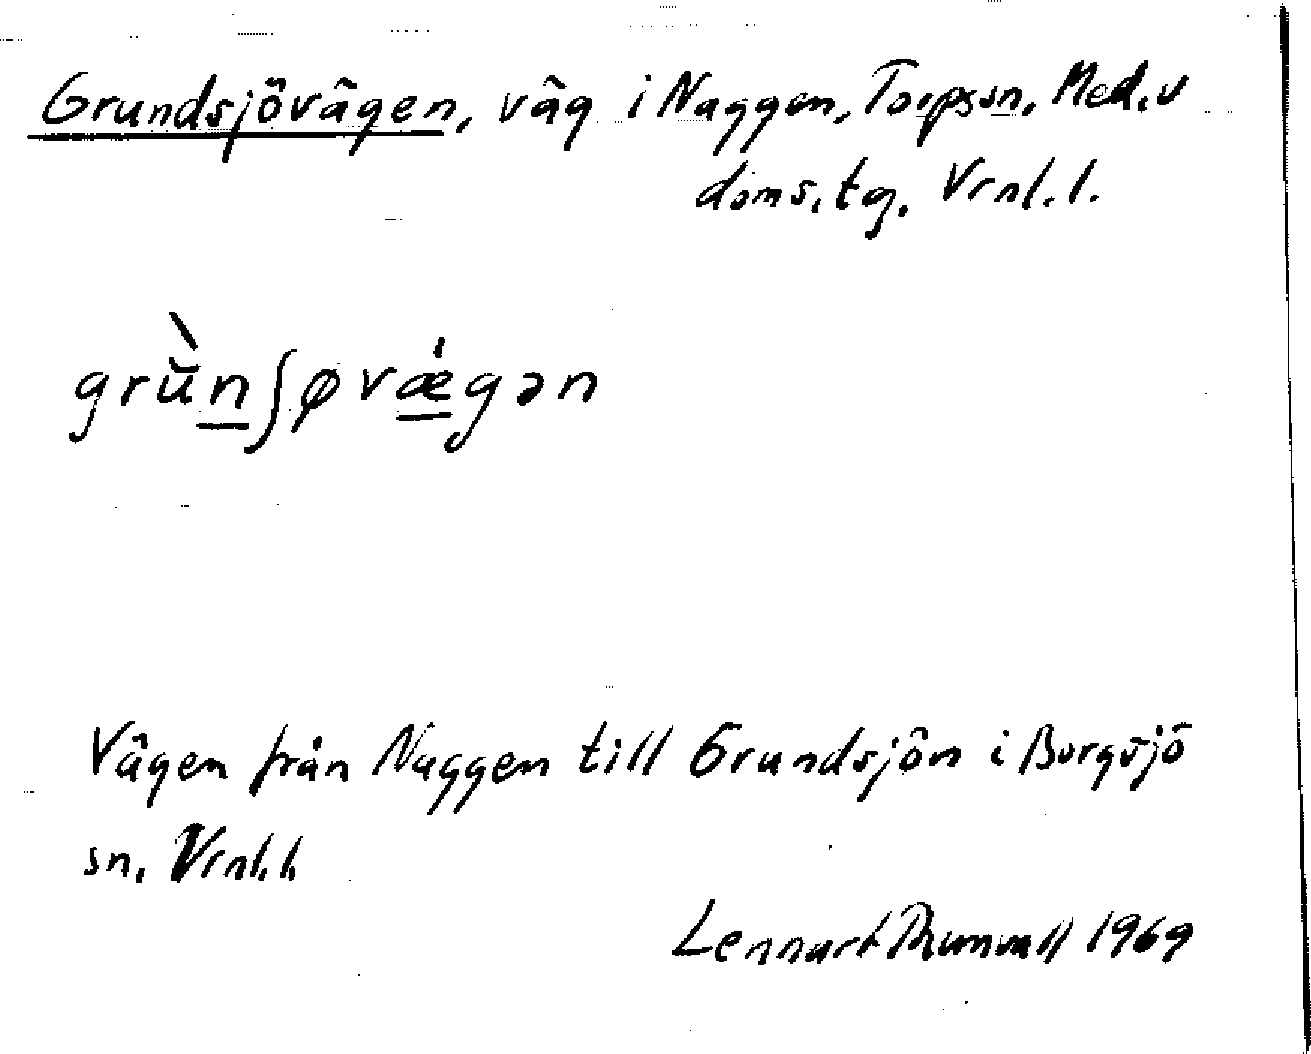 Grundsjövägen, väg i Naggen, Torps sn, Med. v
doms. tg. Vrnl. l.
grǜnʃøvǽgən
Vägen från Naggen till Grundsjön i Borgsjö
sn, Vrnl. l.
Lennart 1969